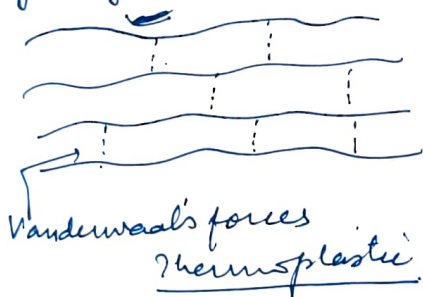 Vanderwaal's forces
Thermoplastic